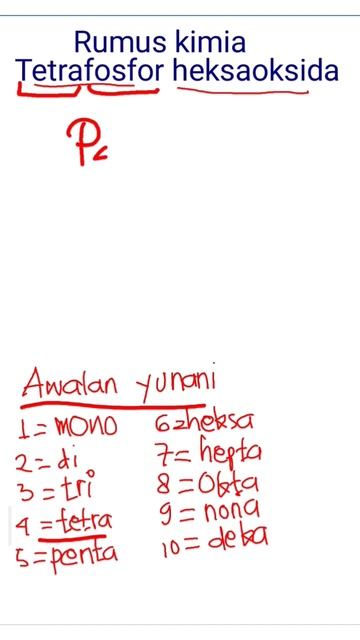 Rumus kimia
Tetrafosfor heksaoksida
P
Awalan yunani
1 = mono 6 = heksa
2 = di 7 = hepta
3 = tri 8 = Okta
4 = tetra 9 = nona
5 = penta 10 = deka